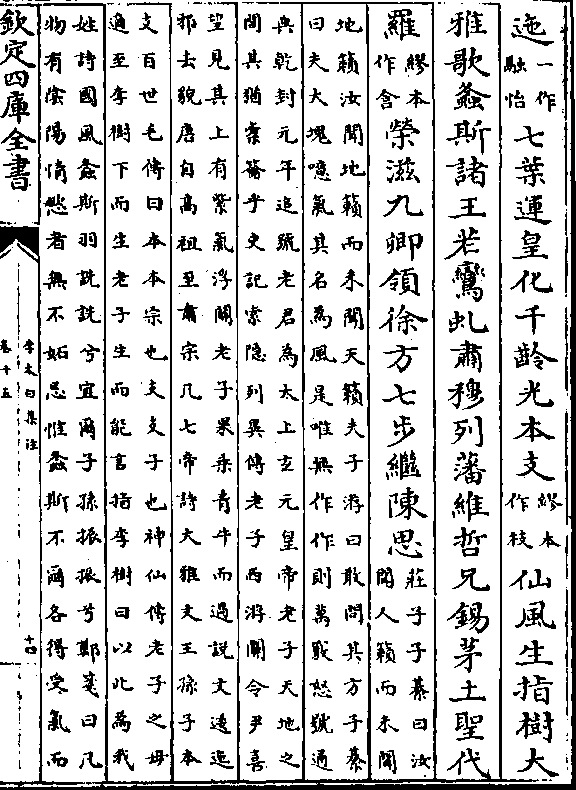 迤一作融怡七葉運皇化千齡光本支繆本作枝仙風生指樹大
雅歌螽斯諸王若鸞虬肅穆列藩維哲兄錫茅土聖代
羅繆本作含榮滋九卿領徐方七步繼陳思莊子子綦曰汝聞人籟而未聞
地籟汝聞地籟而未聞天籟夫子游曰敢問其方子綦
曰夫大塊噫氣其名為風是唯無作作則萬竅怒號通
與乾封元年追號老君為太上玄元皇帝老子天地之
間其猶橐籥乎史記索隱列異傳老子西游關令尹喜
望見其上有紫氣浮關老子果乘青牛而過說文逶迤
邪去貌唐自高祖至肅宗凡七帝詩大雅文王孫子本
支百世毛傳曰本本宗也支支子也神仙傳老子之母
適至李樹下而生老子生而能言指李樹曰以此為我
姓詩國風螽斯羽詵詵兮宜爾子孫振振兮鄭箋曰凡
物有陰陽情慾者無不妬忌惟螽斯不爾各得受氣而
欽定四庫全書
李太白集注
卷十五
十四